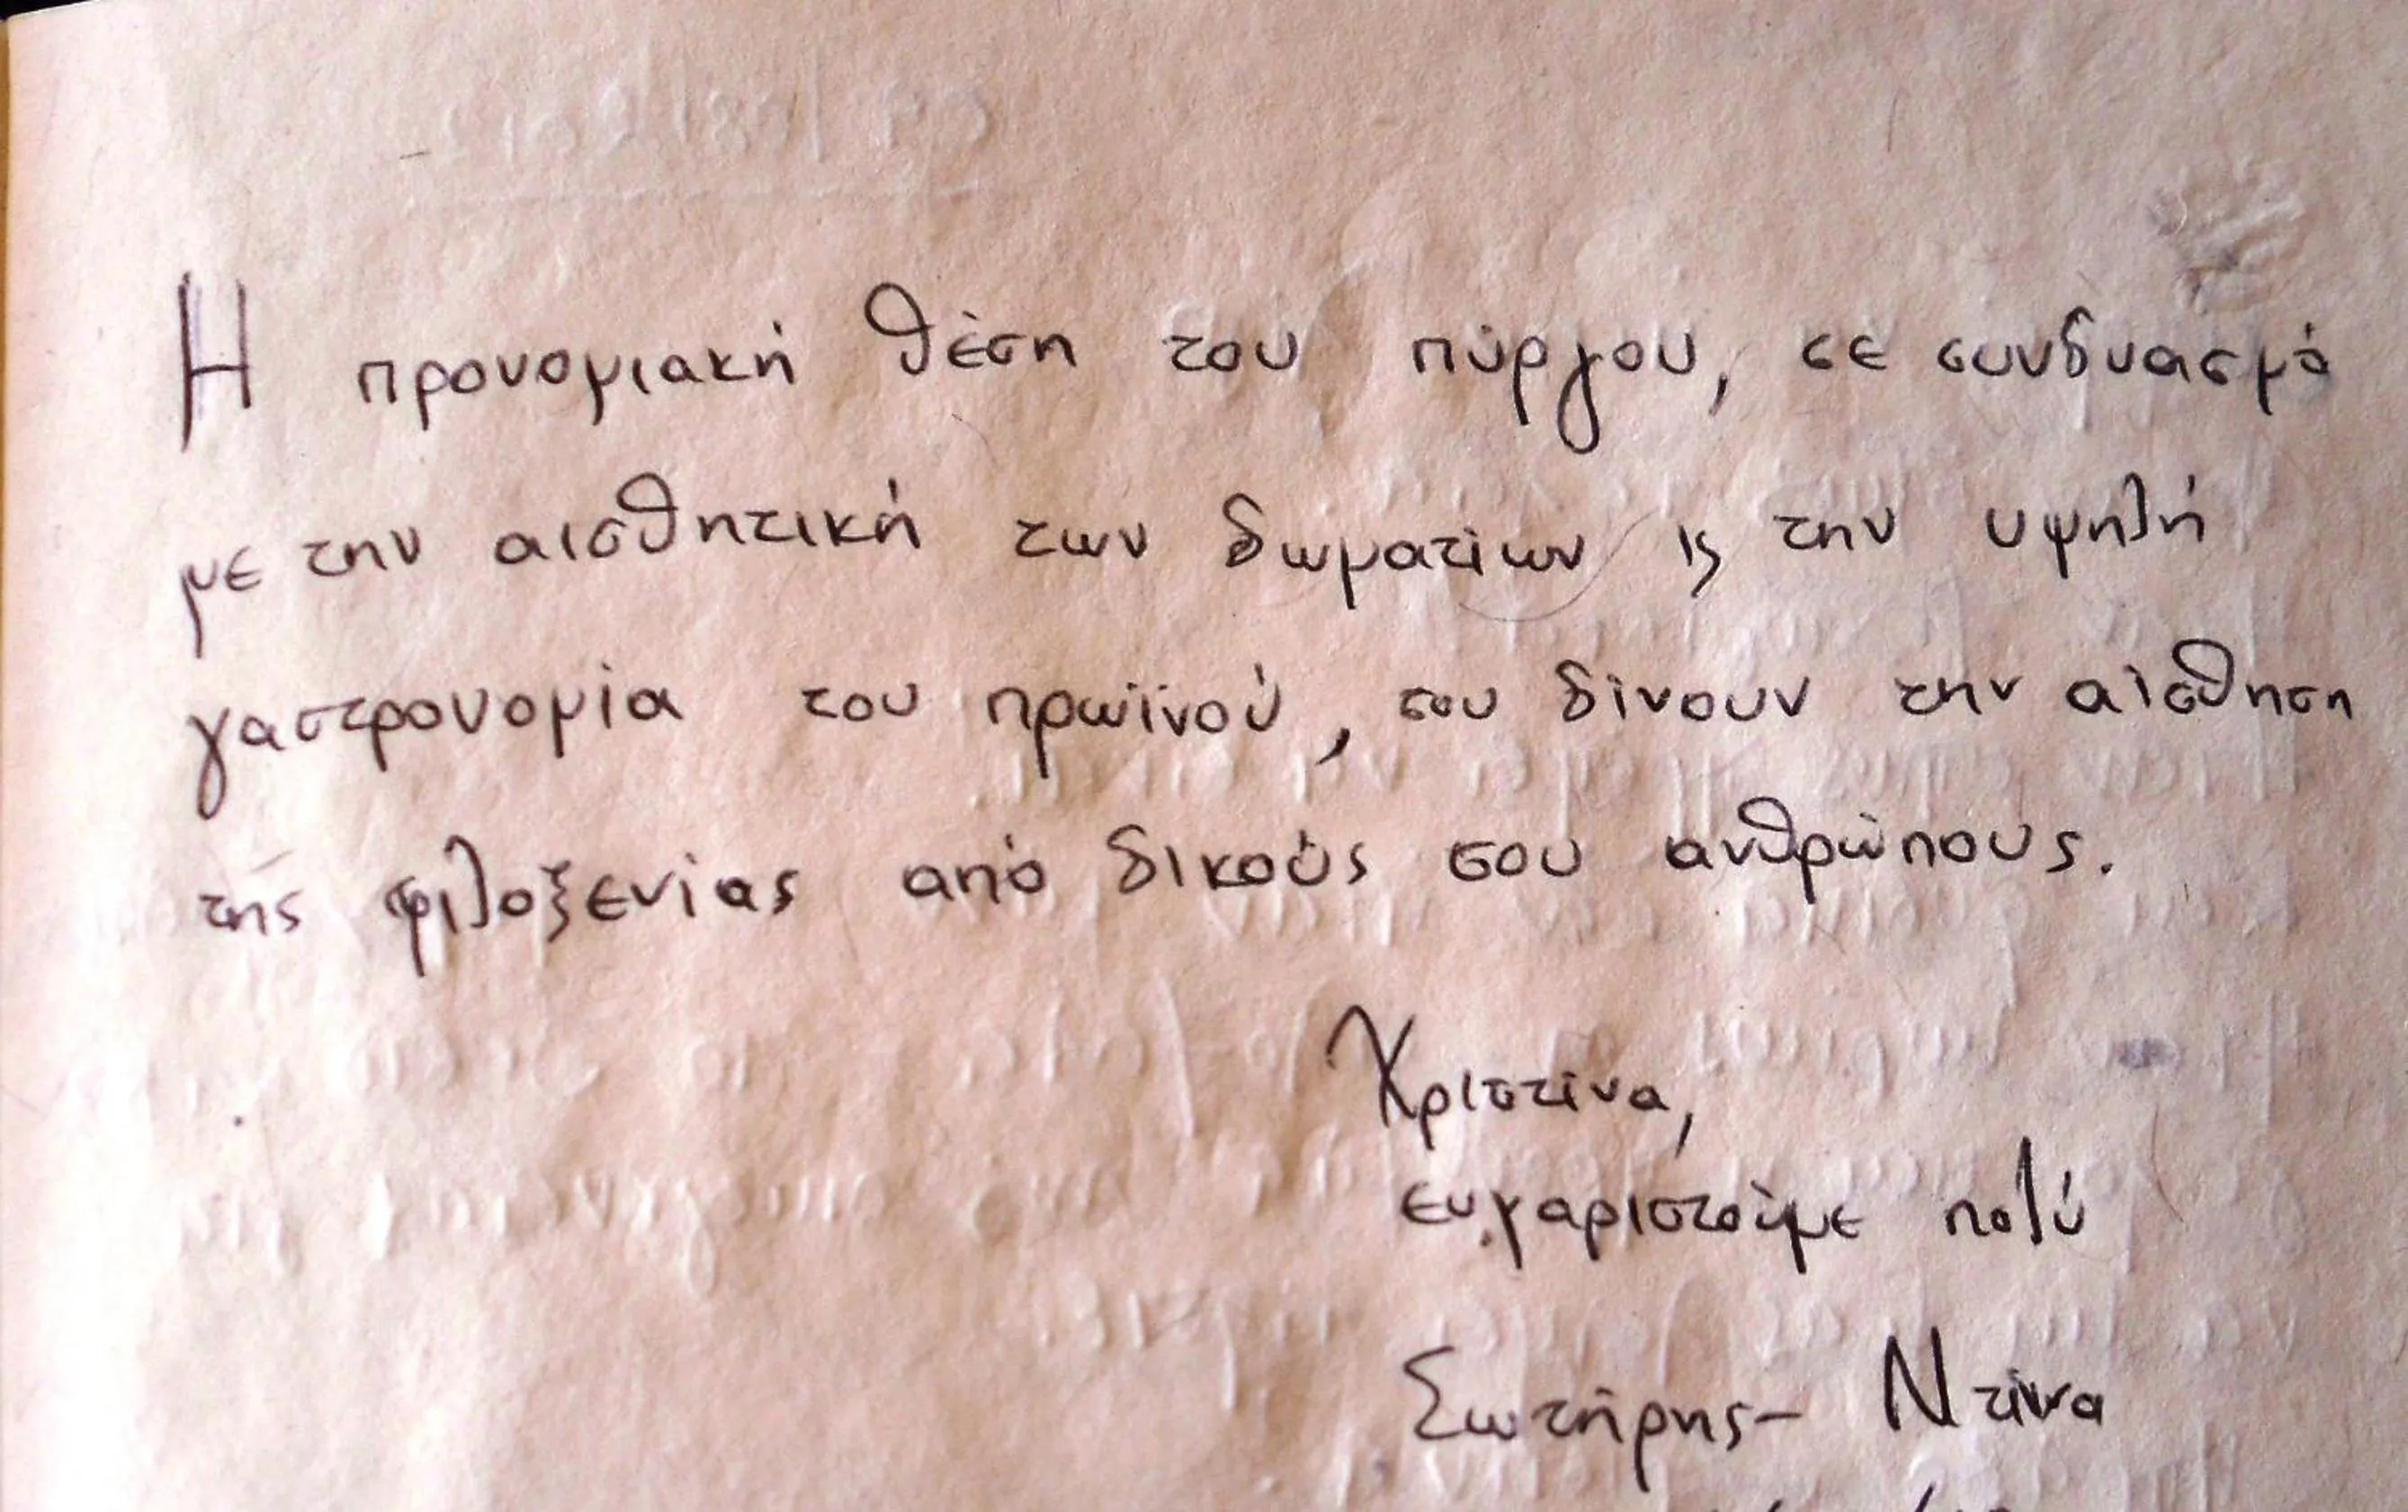 Η προνομιακή θέση του πύργου, σε συνδυασμό
με την αισθητική των δωματίων ϗ την υψηλή
γαστρονομία του πρωϊνού, σου δίνουν την αίσθηση
της φιλοξενίας από δικούς σου ανθρώπους.
Χριστίνα,
ευχαριστούμε πολύ
Σωτήρης- Ντίνα